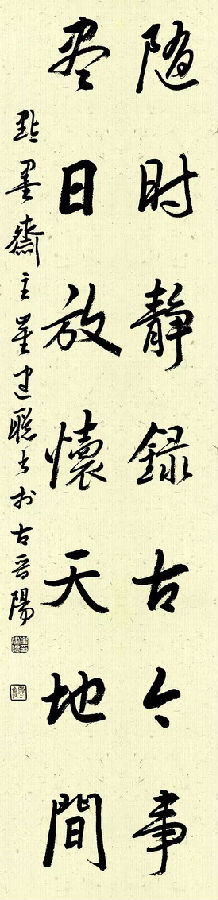 随时静録古今事
尽日放懷天地間
點墨齋主董建聯書於古晉陽